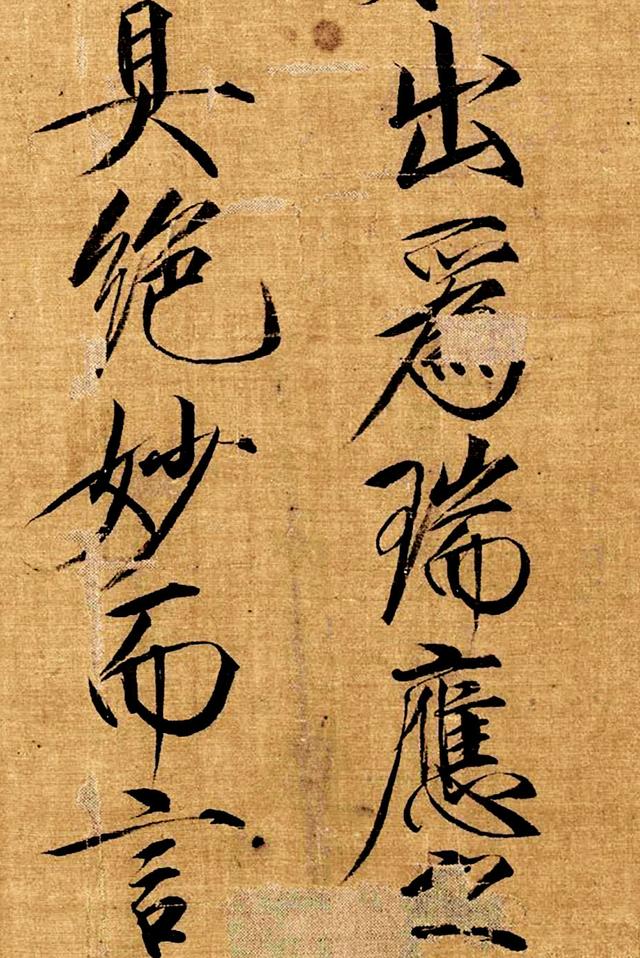 出爲瑞應之
具絶妙而言